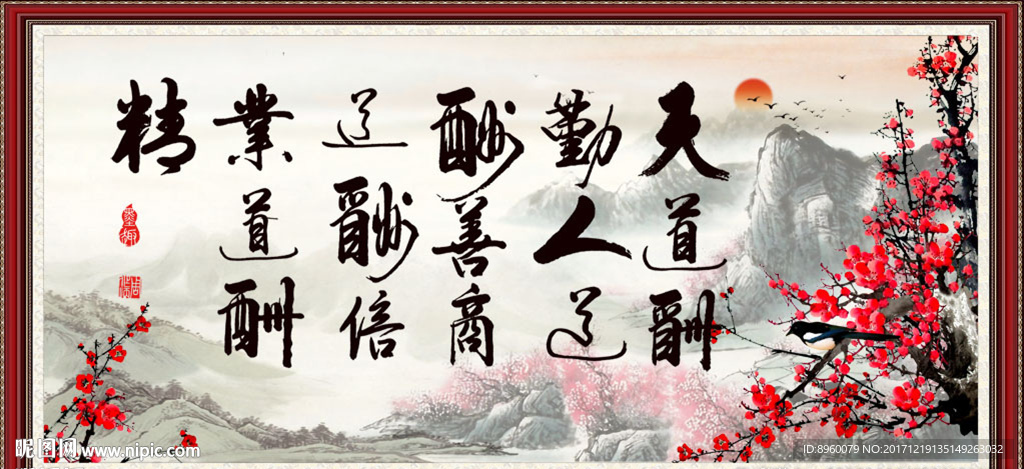 天道酬
勤人道
酬善商
道酬信
業道酬
精
昵图网 www.nipic.com
ID:8960079 NO:20171219135149263032